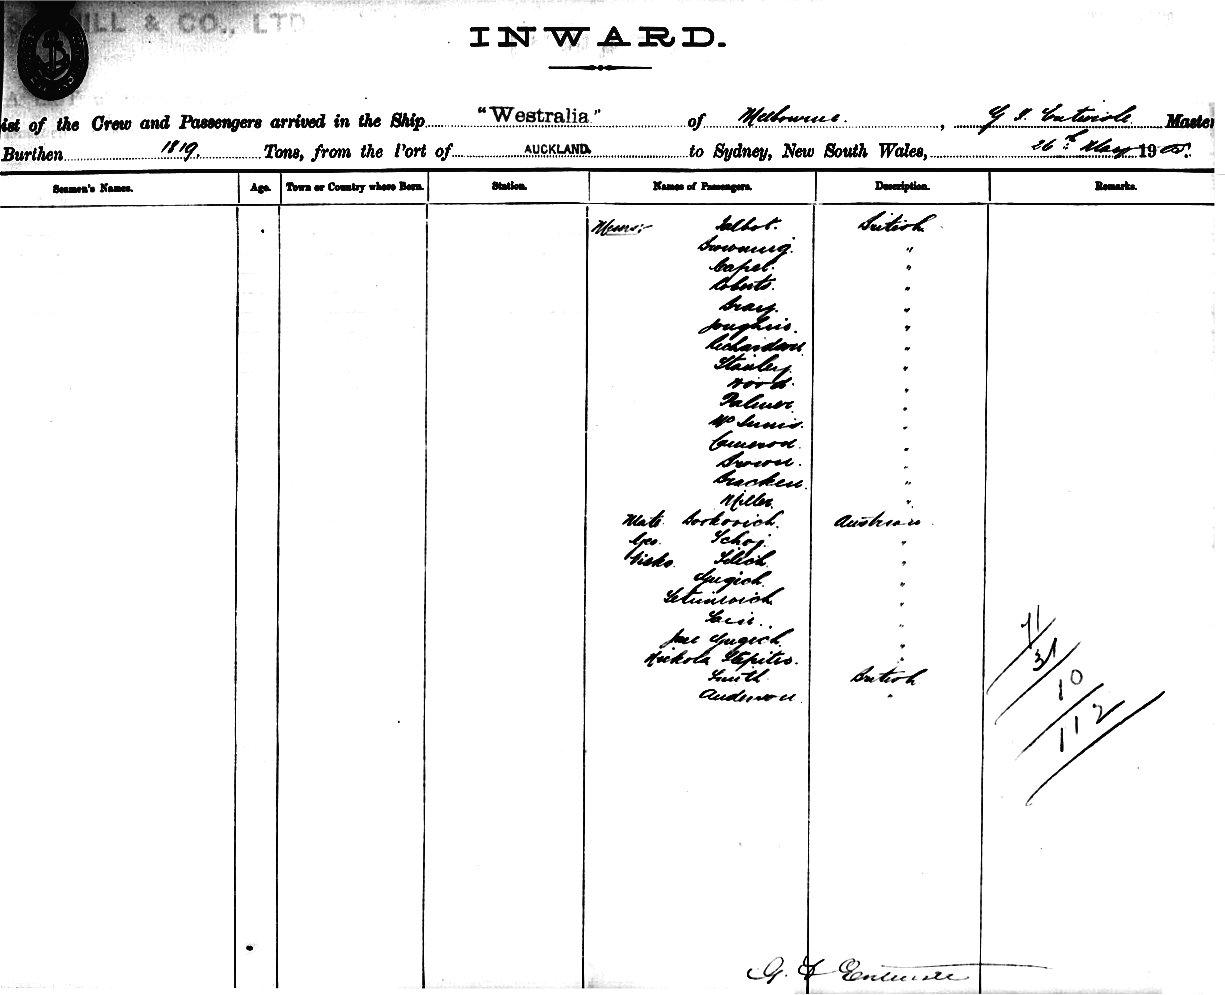 ILL & CO., LTD
INWARD.
ist of the Crew and Passengers arrived in the Ship "Westralia" of Melbourne, G. F. Entwisle Master
Burthen 1819. Tons, from the Port of AUCKLAND. to Sydney, New South Wales, 26th May 190
Seamen's Names. Age. Town or Country where Born. Station. Names of Passengers. Description. Remarks.
Messrs: Talbot. British
Browning. "
Capel. "
Roberts. "
Gray. "
Joughin. "
Richardson "
Stanley "
Wood. "
Palmer "
"
"
Brown. "
Bracken. "
Miller. "
Mate Borkovich. Austrian
Geo. "
Visko "
"
"
"
"
Nickola "
Smith British
Anderson "
71
31
10
112
G. F. Entwisle